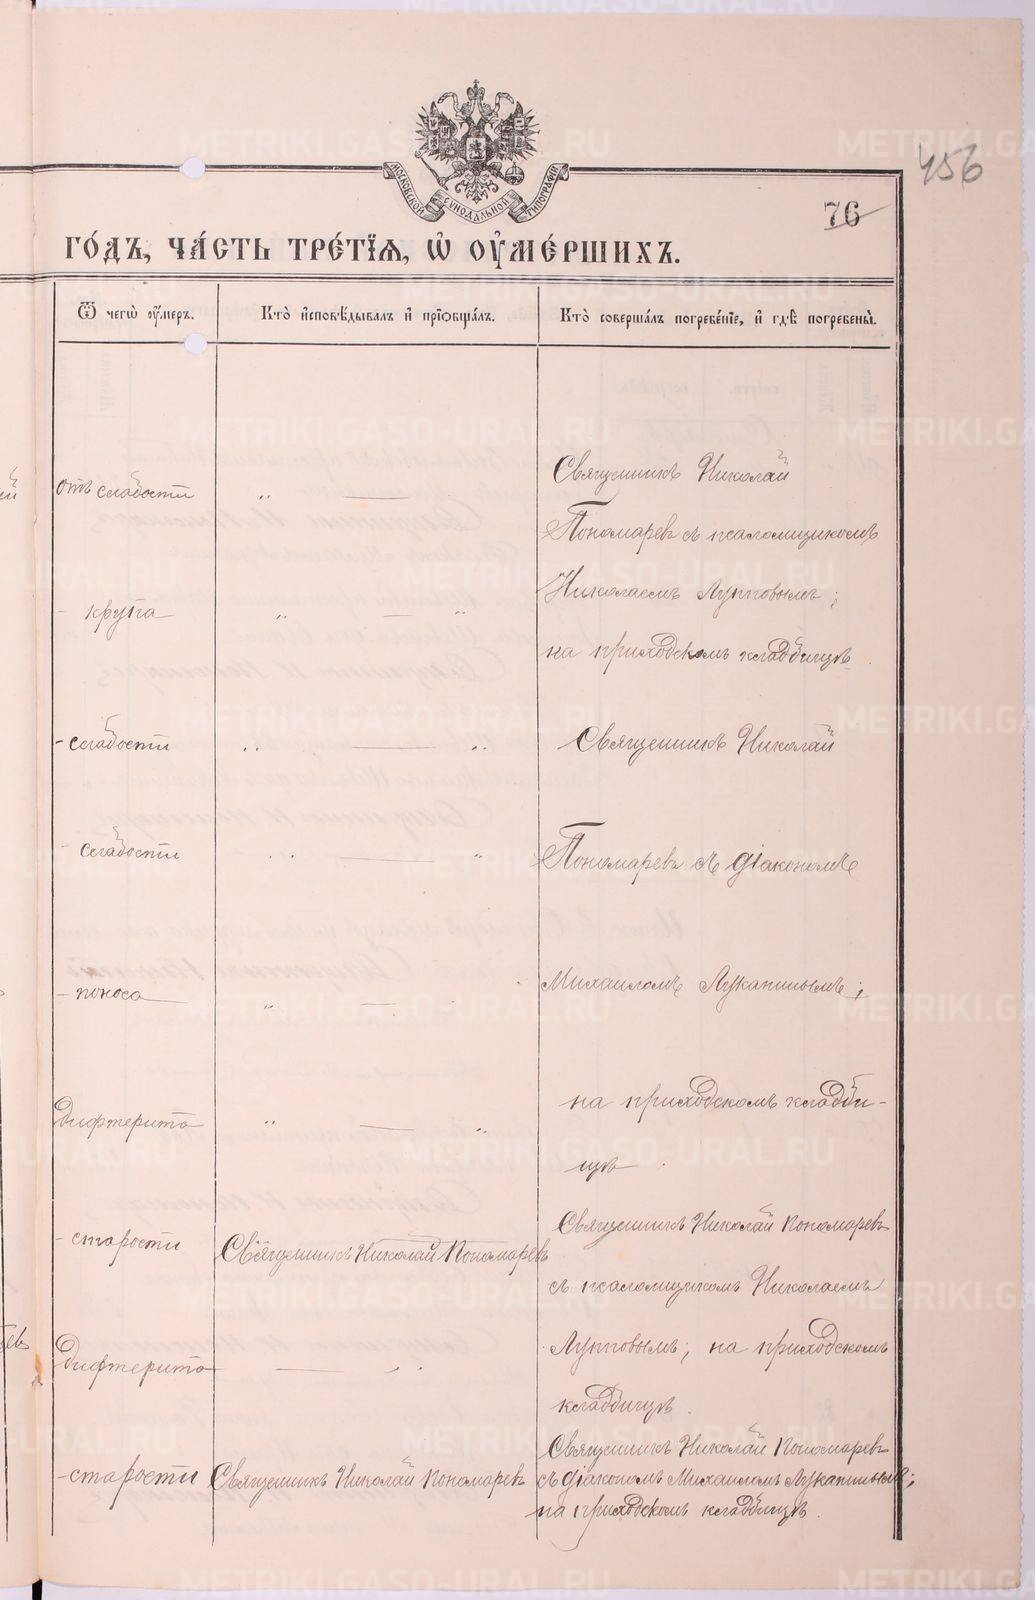 456
76
МОСКОВСКОЙ СѴНОДАЛЬНОЙ ТИПОГРАФІИ
ГО́ДЪ, ЧА́СТЬ ТРЕ́ТІѦ, Ѡ҆ ОУ҆МЕ́РШИХЪ.
Ѿ чегѡ̀ оу҆́меръ.
Кто̀ и҆сповѣ́дывалъ и҆ прїѡбща́лъ.
Кто̀ соверша́лъ погребе́нїе, и҆ гдѣ̀ погребены̀.
Священникъ Николай
отъ слабости " —
Пономаревъ съ псаломщикомъ
Николаемъ Лупповымъ;
- крупа " — "
на приходскомъ кладбищѣ.
- слабости " — " Священникъ Николай
слабости " — "
Пономаревъ съ діакономъ
- поноса " —
Михаиломъ Лукапинымъ;
на приходскомъ кладби-
дифтерита " — "
щѣ.
Священникъ Николай Пономаревъ
- старости Священникъ Николай Пономаревъ
съ псаломщикомъ Николаемъ
Лупповымъ; на приходскомъ
дифтерита — "
кладбищѣ.
Священникъ Николай Пономаревъ
- старости Священникъ Николай Пономаревъ съ діакономъ Михаиломъ Лукапинымъ;
на приходскомъ кладбищѣ.
METRIKI.GASO-URAL.RU